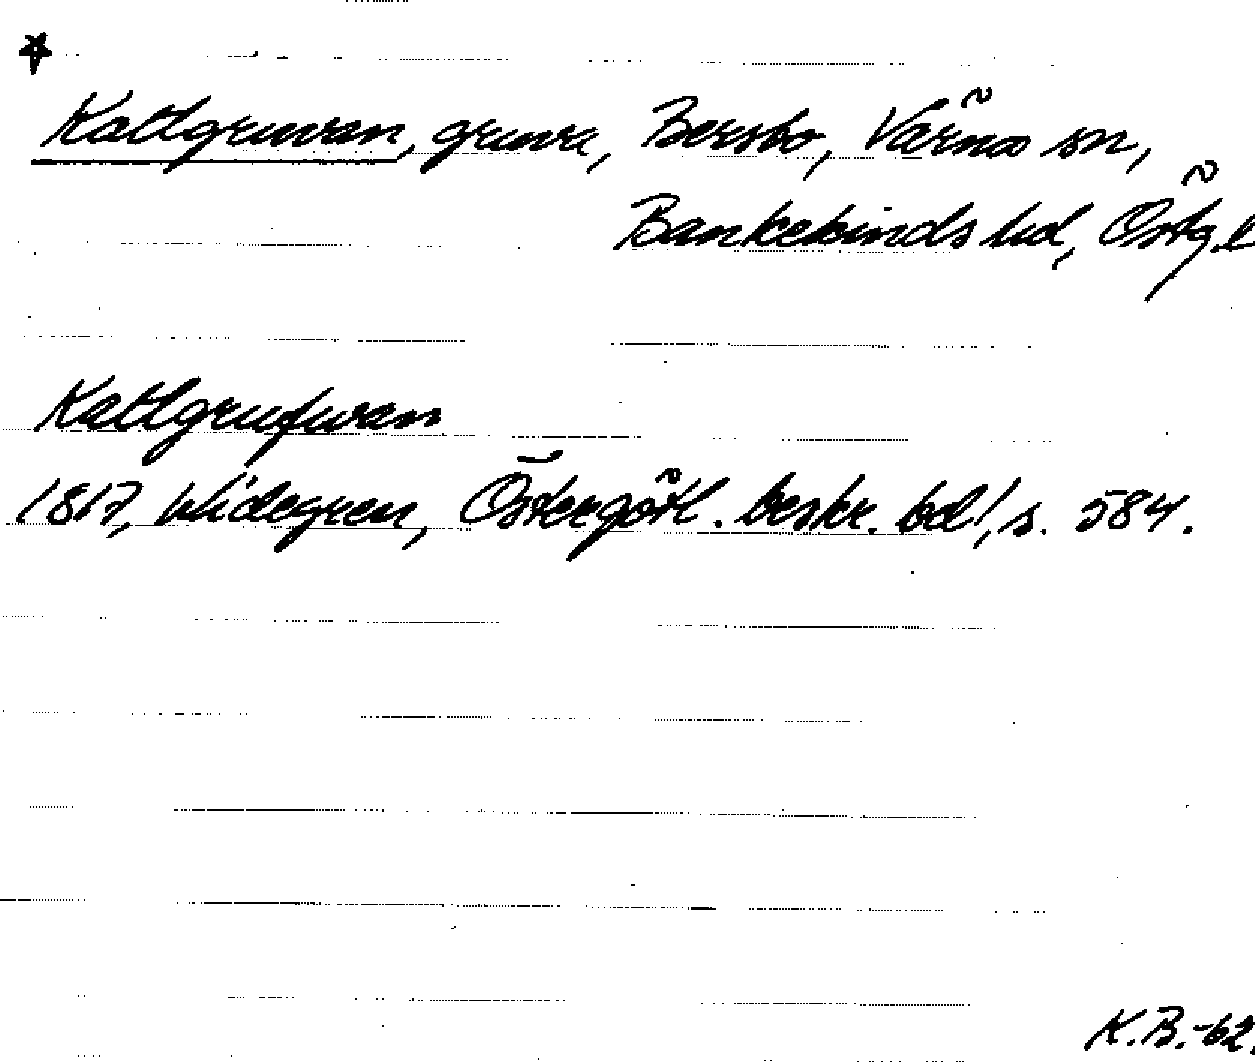 Kattgruvan, gruva, Bersbo, Värna sn,
Bankekinds hd, Östg.l
Kattgrufwan
1817, Widegren, Östergötl. beskr. bd 1, s. 584.
K.B.-62.